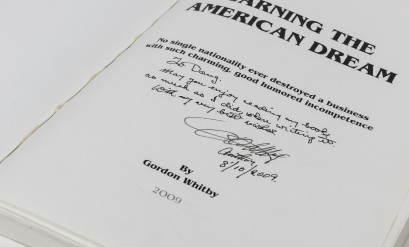 EARNING THE
AMERICAN DREAM
No single nationality ever destroyed a business
with such charming, good humored incompetence
To Doug,
May you enjoy reading my book
as much as I did when writing it.
With my very best wishes
8/10/2009.
By
Gordon Whitby
2009